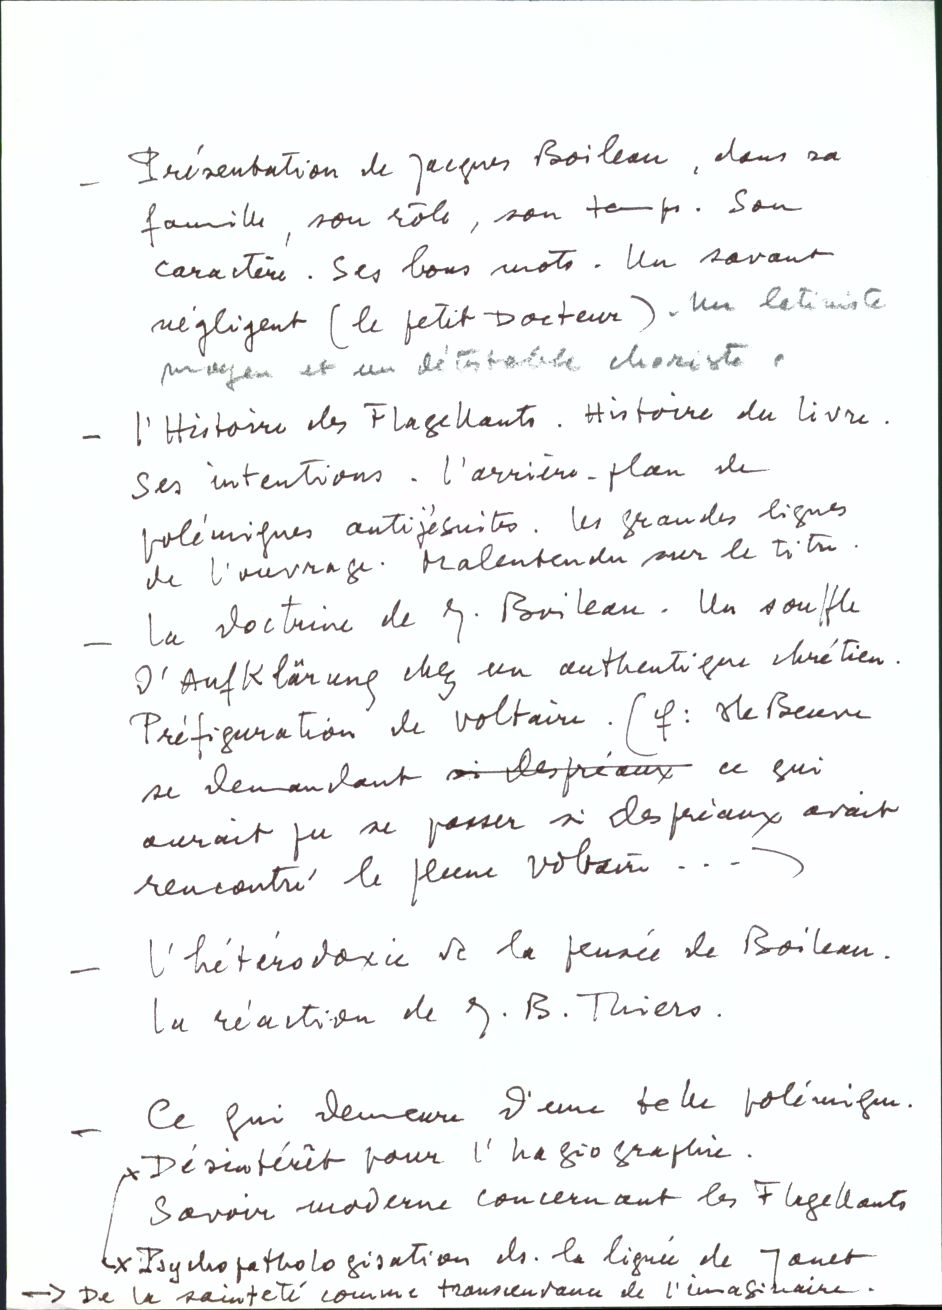 — Présentation de Jacques Boileau, dans sa
famille, son rôle, son temps. Son
caractère. Ses bons mots. Un savant
négligent (le petit Docteur). Un latiniste
moyen et un détestable choriste.
— l'Histoire des Flagellants. Histoire du livre.
Ses intentions. L'arrière-plan de
polémiques antijésuites. Les grandes lignes
de l'ouvrage. Malentendu sur le titre.
— La doctrine de J. Boileau. Un souffle
d'Aufklärung chez un authentique chrétien.
Préfiguration de Voltaire. (cf: Ste Beuve
se demandant si despréaux ce qui
aurait pu se passer si despréaux avait
rencontré le jeune Voltaire...)
— L'hétérodoxie de la pensée de Boileau.
La réaction de J. B. Thiers.
— Ce qui demeure d'une telle polémique.
x Désintérêt pour l'hagiographie.
Savoir moderne concernant les Flagellants
x Psychopathologisation ds. la lignée de Janet
→ De la sainteté comme transcendance de l'imaginaire.